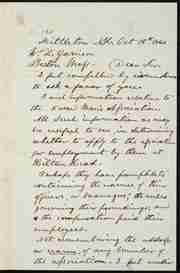 Middleton Oct 18th 186
Wm L. Garrison
Boston Mass. Dear Sir
I feel compelled by
to ask a favor of you:
I need information relative to
the Association
All such information as may
be useful to me in determining
whether to apply to the Association
for employment by them at
Hilton Head.
Perhaps they have pamphlets
containing the names of their
officers, or managers, the rules
governing their proceedings, and
the compensation paid their
employees.
Not remembering the address
or name of any member of
the Association I put under